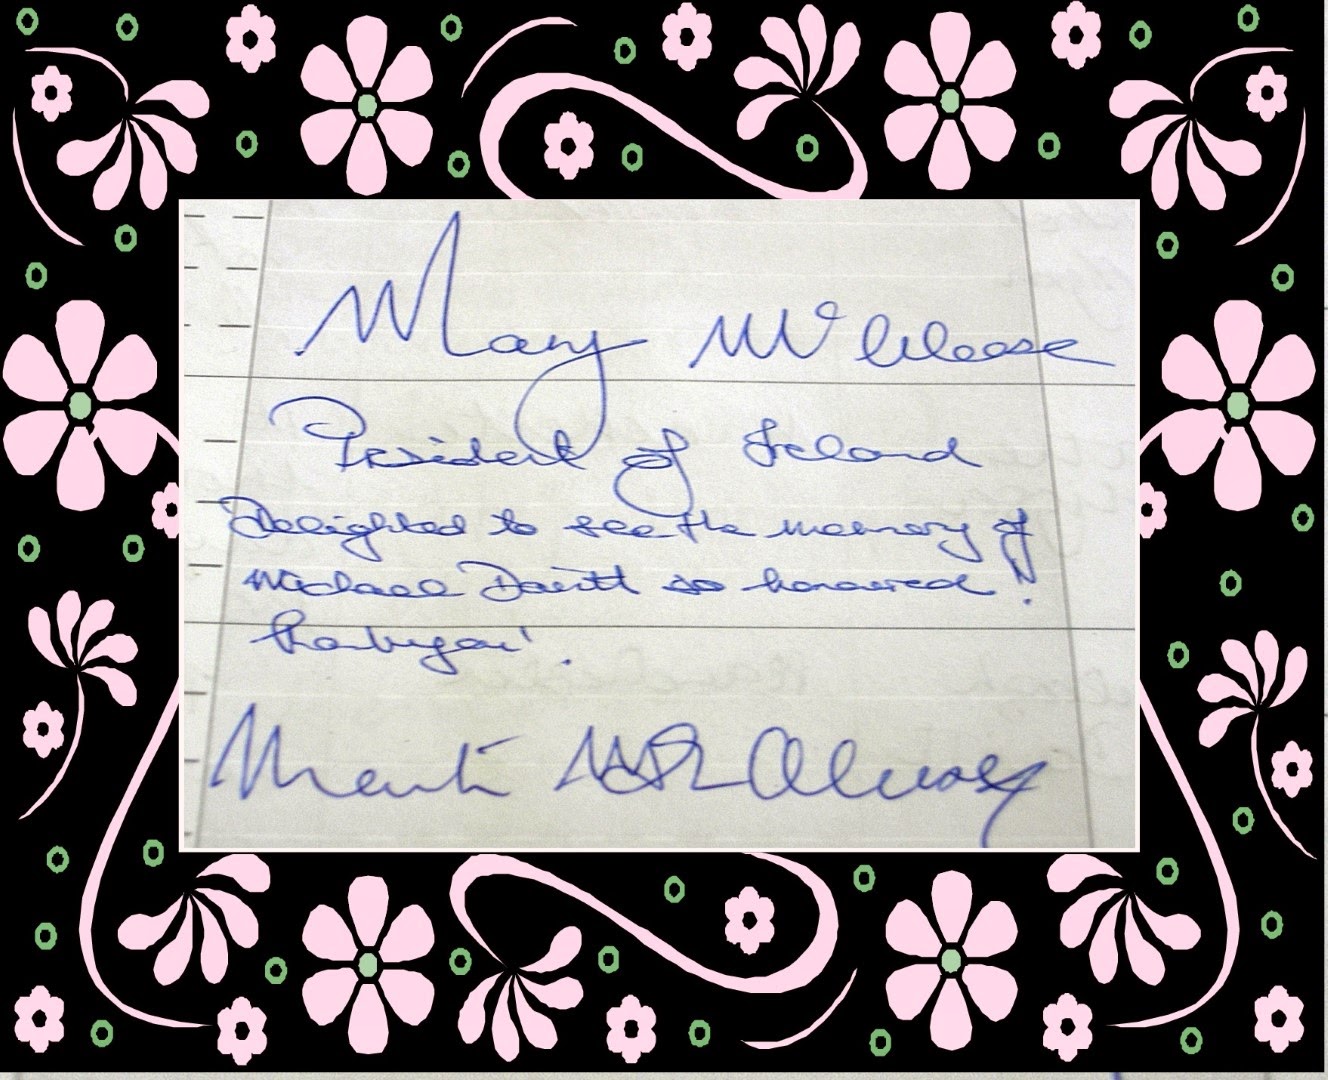 Mary McAleese
President of Ireland
Delighted to see the memory of
Michael Davitt so honoured!
Thankyou!
Martin McAleese